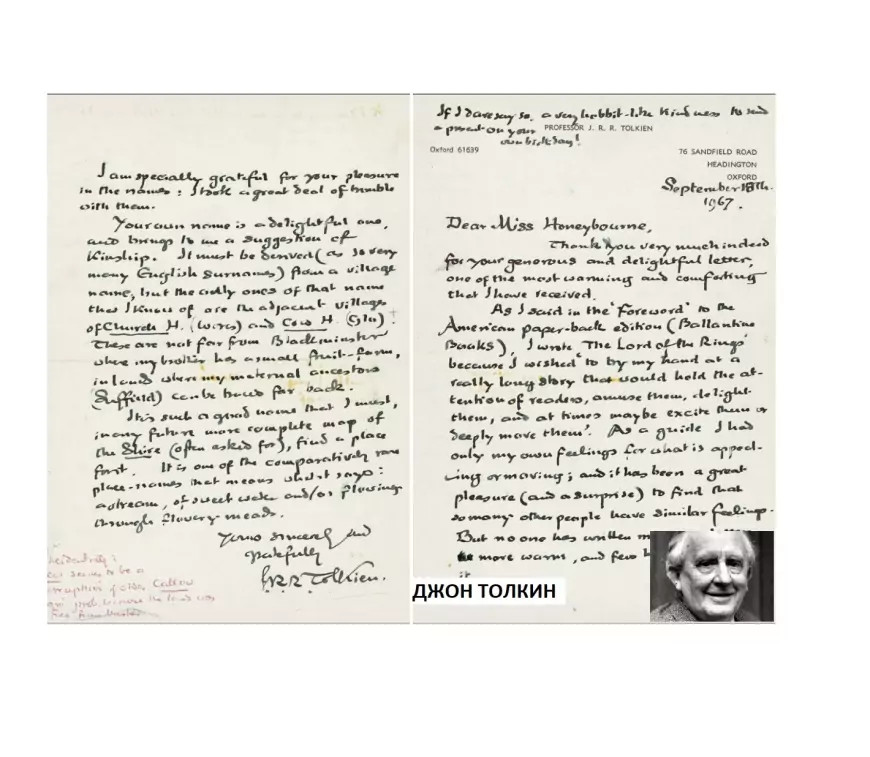 I am specially grateful for your pleasure
in the names: I took a great deal of trouble
with them.
Your own name is a delightful one,
and brings to me a suggestion of
kinship. It must be derived (as so very
many English surnames) from a village
name, but the only ones of that name
that I know of are the adjacent villages
of Church H. (Worcs) and Cow H. (Glo).
These are not far from Blackminster
where my brother has a small fruit-farm,
in land where my maternal ancestors
(Suffield) can be traced far back.
It is such a good name that I must,
in any future more complete map of
the Shire (often asked for), find a place
for it. It is one of the comparatively rare
place-names that means what it says:
a stream, of sweet water and/or flowing
through flowery meads.
Yours sincerely and
gratefully
J.R.R. Tolkien.
seems to be a
of older Callow
the land was
If I dare say so, a very hobbit-like kindness to send
a present on your
PROFESSOR J. R. R. TOLKIEN
own birthday!
Oxford 61639
76 SANDFIELD ROAD
HEADINGTON
OXFORD
September 18th.
1967.
Dear Miss Honeybourne,
Thank you very much indeed
for your generous and delightful letter,
one of the most warming and comforting
that I have received.
As I said in the 'Foreword' to the
American paper-back edition (Ballantine
Books), I wrote The Lord of the Rings
because I wished 'to try my hand at a
really long story that would hold the at-
tention of readers, amuse them, delight
them, and at times maybe excite them or
deeply move them'. As a guide I had
only my own feelings for what is appeal-
ing or moving; and it has been a great
pleasure (and a surprise) to find that
so many other people have similar feelings.
But no one has written m
more warm, and few
it
ДЖОН ТОЛКИН